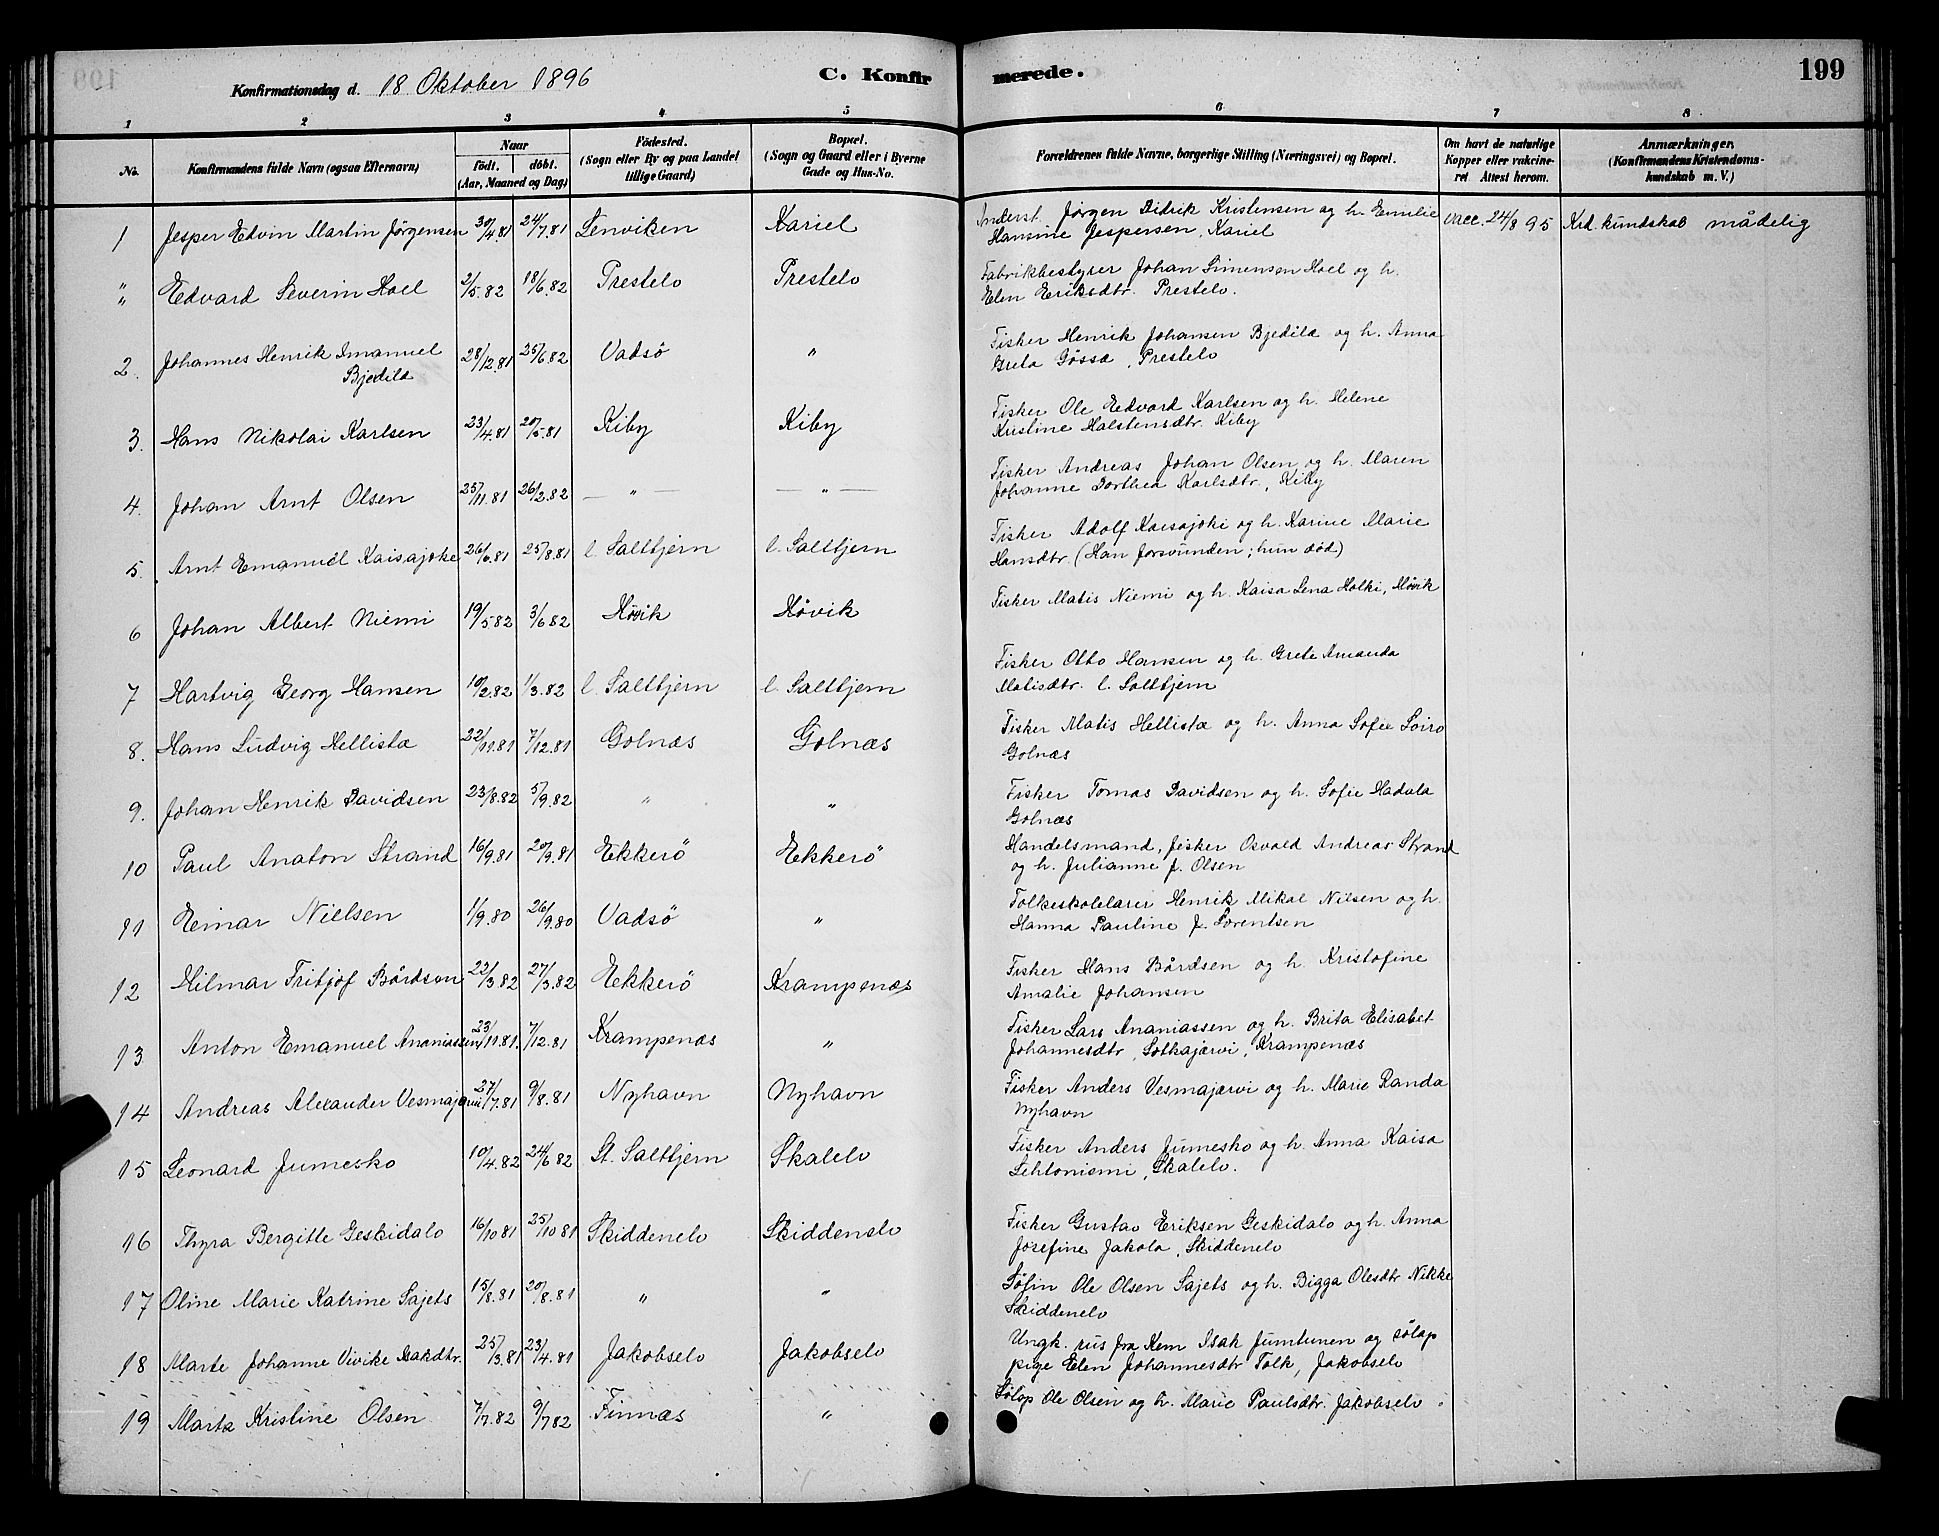 Konfirmationsdag d. 18 Oktober 1896 C. Konfirmerede. 199
1 2 3 4 5 6 7 8
No. Konfirmandens fulde Navn (ogsaa Efternavn) Naar födt. döbt. (Aar, Maaned og Dag) Födested. (Sogn eller By og paa Landet tillige Gaard) Bopæl. (Sogn og Gaard eller i Byerne Gade og Hus-No. Forældrenes fulde Navne, borgerlige Stilling (Næringsvei) og Bopæl. Om havt de naturlige Kopper eller vakcineret Attest herom. Anmærkninger. (Konfirmandens Kristendomskundskab m. V.)
1 Jesper Edvin Martin Jørgensen 30/4.81 24/7.81 Lenviken Kariel Anderst. Jørgen Didrik Kristensen og h. Emilie
Hansine Jespersen, Kariel vacc. 24/8 95 Krd. kundskab mådelig
" Edvard Severin Hoel 2/5.82 18/6.82 Prestelv Prestelv Fabrikbestyrer Johan Simensen Hoel og h.
Elen Eriksdtr. Prestelv.
2. Johannes Henrik Imanuel
Bjedilä 28/12.81 25/6.82 Vadsö " Fisker Henrik Johansen Bjedilä og h. Anna
Greta Gøssa, Prestelv
3. Hans Nikolai Karlsen 23/4.81 20/5.81 Kiby Kiby Fisker Ole Edvard Karlsen og h. Helene
Kristine Halstensdtr. Kiby
4. Johan Arnt Olsen 25/11.81 26/2.82 — " — — " — Fisker Andreas Johan Olsen og h. Maren
Johanne Dorthea Karlsdtr., Kiby
5. Arnt Emanuel Kaisajoke 26/6.81 25/8.81 l. Saltbjern l. Saltbjern Fisker Adolf Kaisajoki og h. Karine Marie
Hansdtr. (Han forsvunden; hun død)
6 Johan Albert Niemi 19/5 82 3/6 82 Høvik Høvik Fisker Matis Niemi og h. Kaisa Lena Holki, Høvik
7 Hartvig Georg Hansen 10/2.82 1/3.82 l. Saltbjern l. Saltbjern Fisker Otto Hansen og h. Grete Amanda
Matisdtr. l. Saltbjern
8. Hans Ludvig Hellista 22/11.81 7/12.81 Golnæs Golnæs Fisker Matis Hellista og h. Anna Sofie Soiro
Golnæs
9. Johan Henrik Davidsen 23/8.82 5/9.82 " " Fisker Tomas Davidsen og h. Sofie Hadula
Golnæs
10 Paul Anaton Strand 16/9.81 20/9.81 Ekkerö Ekkerö Handelsmand, fisker Osvald Andreas Strand
og h. Julianne f. Olsen
11 Einar Nielsen 1/9.80 26/9.80 Vadsö " Folkeskolelærer Henrik Mikal Nilsen og h.
Hanna Pauline f. Lorentsen
12 Hilmar Fritjof Bårdsen 22/3 82 27/3.82 Ekkerö Krampenæs Fisker Hans Bårdsen og h. Kristofine
Amalie Johansen
13 Anton Emanuel Ananiassen 23/11.81. 7/12.81 Krampenæs " Fisker Lars Ananiassen og h. Brita Elisabet
Johannesdtr, Sotkajærvi, Krampenæs
14 Andreas Alexander Vesmajærvi 27/7.81 9/8.81 Nyhavn Nyhavn Fisker Anders Vesmajærvi og h. Marie Randa
Nyhavn
15 Leonard Jumesko 10/4.82 24/6 82 St. Saltbjern Skalelv Fisker Anders Jumesko og h. Anna Kaisa
Lehtoniemi, Skalelv.
16 Thyra Bergitte Geskidalo 16/10 81 25/10 81 Skiddenelv Skiddenelv Fisker Gustav Eriksen Geskidalo og h. Anna
Josefine Jakola, Skiddenelv
17 Oline Marie Katrine Sajets 15/8.81 20/8.81 " " Søfin Ole Olsen Sajets og h. Bigga Olesdtr Nikke
Skiddenelv
18 Marte Johanne Vivike Isakdtr. 25/3.81 23/4.81 Jakobselv Jakobselv Ungk. rus fra Kem Isak Jumtunen og sølap
pige Elen Johannesdtr Tolk, Jakobselv
19 Marta Kristine Olsen 7/7.82 9/7 82 Finnæs " Sølap Ole Olsen og h. Marie Paulsdtr. Jakobselv.